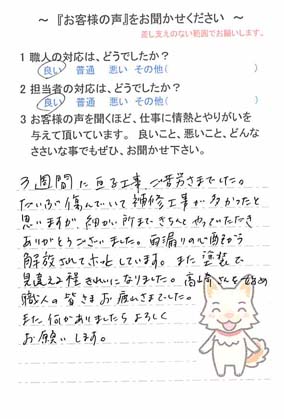 ～ 『お客様の声』をお聞かせください ～
差し支えのない範囲でお願いします。
1 職人の対応は、どうでしたか？
良い 普通 悪い その他( )
2 担当者の対応は、どうでしたか？
良い 普通 悪い その他( )
3 お客様の声を聞くほど、仕事に情熱とやりがいを
与えて頂いています。 良いこと、悪いこと、どんな
ささいな事でもぜひ、お聞かせ下さい。
3週間に亘る工事ご苦労さまでした。
だいぶ傷んでいて補修工事が多かったと
思いますが、細かい所まできちんとやっていただき
ありがとうございました。雨漏りの心配から
解放されてホッとしています。また塗装で
見違える程きれいになりました。高崎さんを始め
職人の皆さまお疲れさまでした。
また何かありましたらよろしく
お願いします。